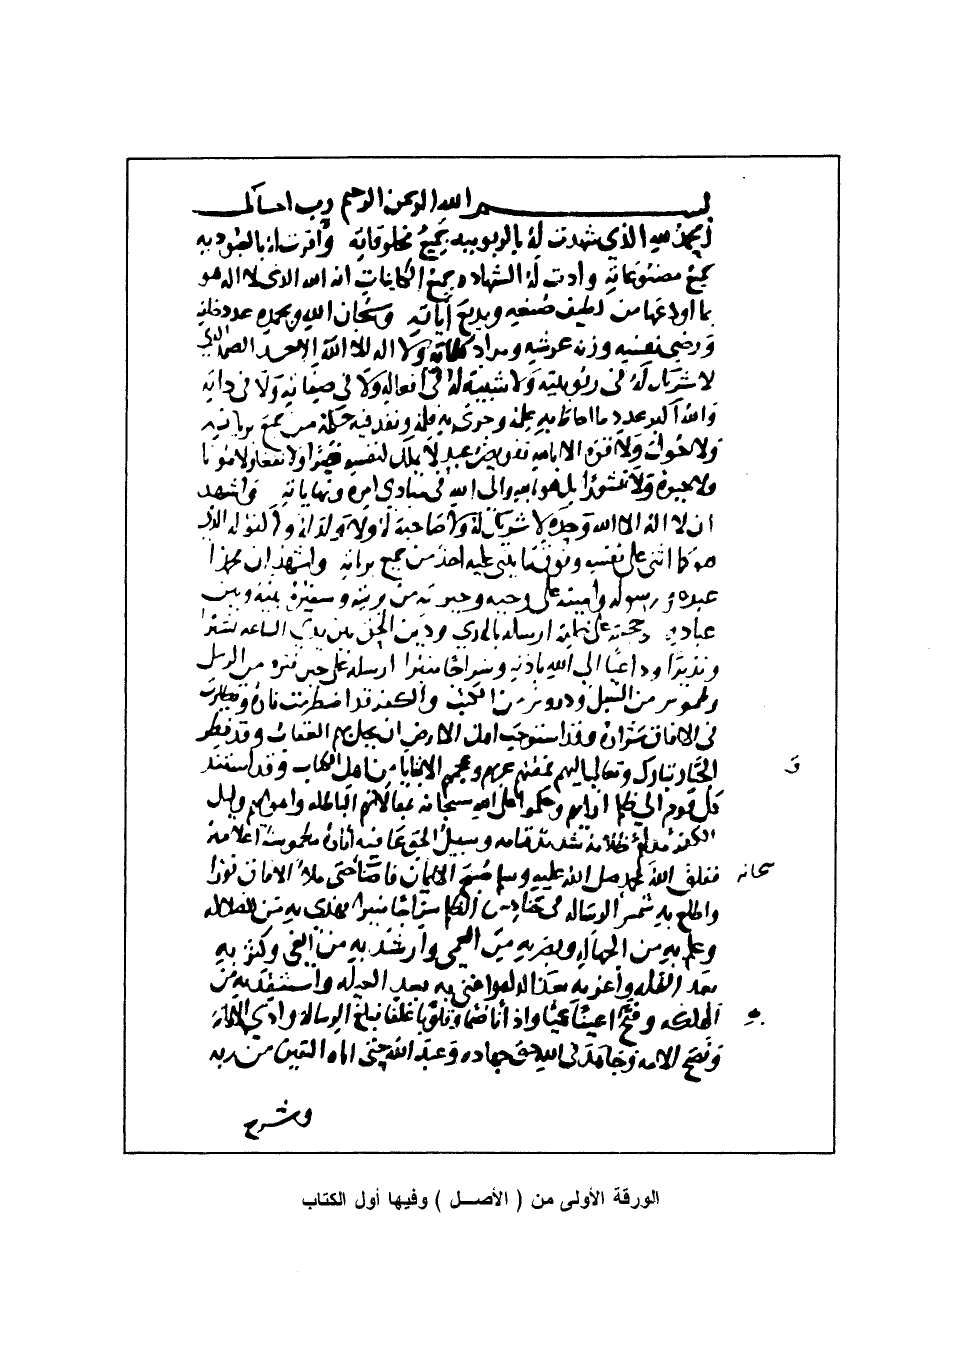 بسم الله الرحمن الرحيم رب
الحمد لله الذي شهدت له بالربوبيه جميع مخلوقاته واقرت له بالعبوديه
جميع مصنوعاته وادت له الشهاده جميع الكاينات انه الله الذي لا اله هو
بما اودعها من لطيف صنعه وبديع آياته وسبحان الله وبحمده عدد خلقه
ورضى نفسه وزنة عرشه ومداد كلماته ولا اله الا الله الاحد الصمد الذي
لا شريك له في ربوبيته ولا شبيه له في افعاله ولا في صفاته ولا في ذاته
والله اكبر عدد ما احاط به علمه وجرى به قلمه ونفذ فيه حكمه من جميع برياته
ولا حول ولا قوة الا بالله تفويض عبد لا يملك لنفسه ضرا ولا نفعا ولا موتا
ولا حيوة ولا نشورا بل هو بالله والى الله في مبادي امره ونهاياته واشهد
ان لا اله الا الله وحده لا شريك له ولا صاحبة له ولا ولد له ولا كفو له الذي
هو كما اثنى على نفسه وفوق ما يثني عليه احد من جميع برياته واشهد ان محمدا
عبده ورسوله وامينه على وحيه وخيرته من بريته وسفيره بينه وبين
عباده وحجته على خلقه ارسله بالهدى ودين الحق بين يدي الساعه بشيرا
ونذيرا وداعيا الى الله باذنه وسراجا منيرا ارسله على حين فترة من الرسل
وطموس من السبل ودروس من الكتب والكفر قد اضطرمت ناره وتطايرت
في الافاق شراره وقد استوجب اهل الارض ان يحل بهم العقاب وقد نظر
الجبار تبارك وتعالى اليهم فمقتهم عربهم وعجمهم الا بقايا من اهل الكتاب وقد استند
كل قوم الى ظلم ارايهم وحكموا على الله سبحانه بمقالاتهم الباطله واهوائهم وليل
الكفر مدلهم ظلامه شديد قتامه وسبيل الحق عافيه آثاره مطموسة اعلامه
ففلق الله بمحمد صلى الله عليه وسلم صبح الايمان فاضاء حتى ملأ الافاق نورا
واطلع به شمس الرساله في حنادس الظلم سراجا منيرا فهدى به من الضلاله
وعلم به من الجهاله وبصر به من العمى وارشد به من الغي وكثر به
بعد القله واعز به بعد الذله واغنى به بعد العيله واستنقذ به من
الهلكه وفتح به اعينا عميا واذانا صما وقلوبا غلفا فبلغ الرسالة وادى الامانه
ونصح الامه وجاهد في الله حق جهاده وعبد الله حتى اتاه اليقين من ربه
وشرح
و
سبحانه
به
الورقة الأولى من ( الأصـــل ) وفيها أول الكتاب